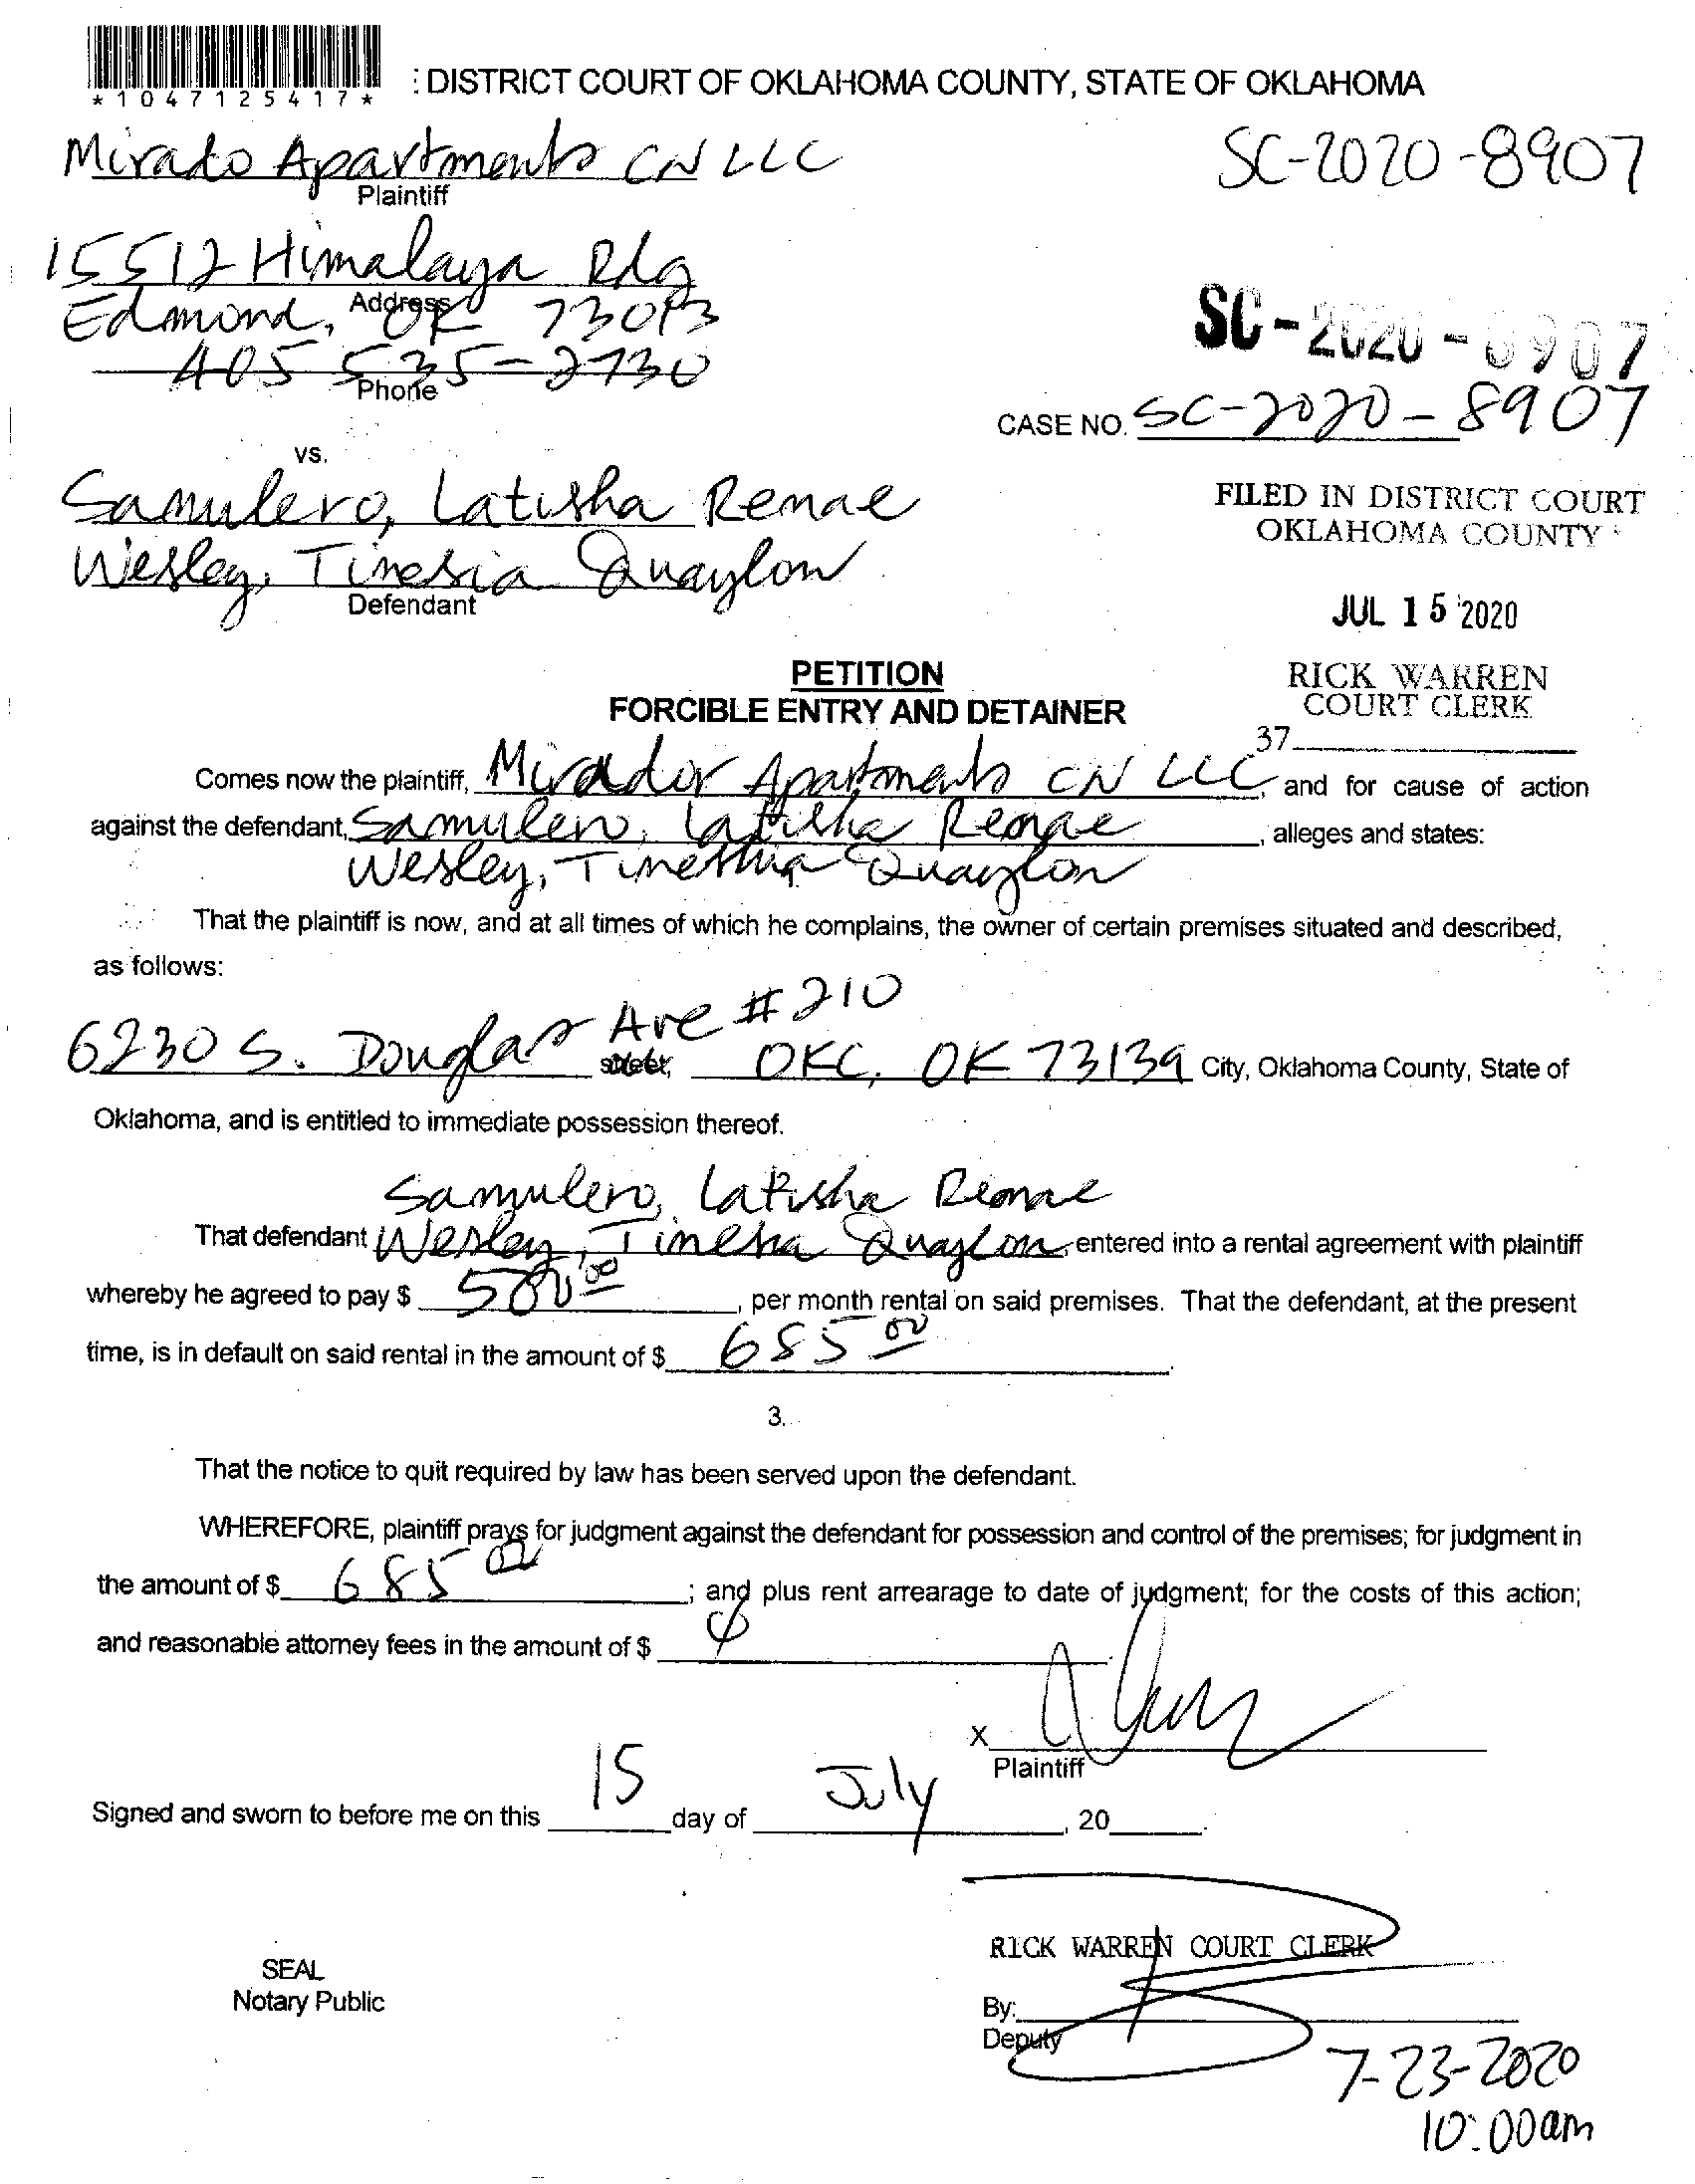 *1047125417*
: DISTRICT COURT OF OKLAHOMA COUNTY, STATE OF OKLAHOMA
Mirado Apartments CN LLC
SC-2020-8907
Plaintiff
15512 Himalaya Rdg
Address
Edmond, OK 73013
SC-2020-8907
405 535-2730
Phone
CASE NO. SC-2020-8907
vs.
Samulero, Latisha Renae
FILED IN DISTRICT COURT
OKLAHOMA COUNTY
Wesley, Tinesia Quaylon
Defendant
JUL 15 2020
PETITION
RICK WARREN
COURT CLERK
FORCIBLE ENTRY AND DETAINER
37
Comes now the plaintiff, Mirador Apartments CN LLC, and for cause of action
against the defendant, Samulero, Latisha Renae, alleges and states:
Wesley, Quaylon
That the plaintiff is now, and at all times of which he complains, the owner of certain premises situated and described,
as follows:
6230 S. Douglas Ave #210
street, OKC, OK 73139 City, Oklahoma County, State of
Oklahoma, and is entitled to immediate possession thereof.
Samulero, Latisha Renae
That defendant Wesley, Tinesha Quaylon entered into a rental agreement with plaintiff
whereby he agreed to pay $ 500.00, per month rental on said premises. That the defendant, at the present
time, is in default on said rental in the amount of $ 685 00.
3.
That the notice to quit required by law has been served upon the defendant.
WHEREFORE, plaintiff prays for judgment against the defendant for possession and control of the premises; for judgment in
the amount of $ 685 00; and plus rent arrearage to date of judgment; for the costs of this action;
and reasonable attorney fees in the amount of $ ϕ.
X
Plaintiff
Signed and sworn to before me on this 15 day of July, 20
RICK WARREN COURT CLERK
SEAL
Notary Public
By:
Deputy
7-23-2020
10:00am